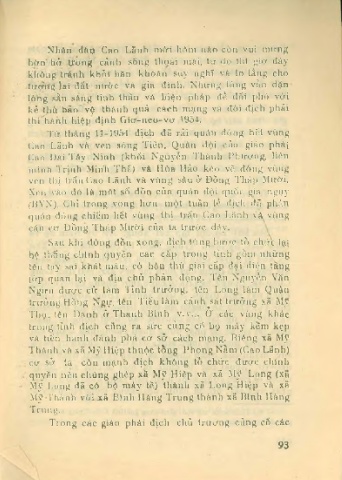 Nhân dân Cao Lãnh mới hôm nào còn vui mừng
hớn hở trong cảnh sống thoại mái, tự do thì giờ đây
không tránh khỏi băn khoăn suy nghĩ và lo lắng cho
tương lai đất nước và gia đình. Nhưng lòng vẫn dặn
lòng sẵn sàng tinh thần và biện pháp để đối phó với
kẻ thù bảo vệ thành quả cách mạng và đòi địch phải
thi hành hiệp định Giơ-neo-vơ 1954.
Từ tháng 11-1954 địch đã rải quân đóng hết vùng
Cao Lãnh và ven sông Tiền. Quân đội của giáo phái
Cao Đài Tây Ninh (khối Nguyễn Thành Phương, liên
minh Trịnh Minh Thế) và Hòa Hảo kéo về đóng vùng
ven thị trấn Cao Lãnh và vùng sâu ở Đồng Tháp Mười.
Xen vào đó là một số đồn của quân đội quốc gia ngụy
(BVN). Chỉ trong vòng hơn một tuần lễ địch đã phân
quân đóng chiếm hết vùng thị trấn Cao Lãnh và vùng
căn cứ Đồng Tháp Mười của ta trước đây.
Sau khi đóng đồn xong, địch từng bước tổ chức lại
hệ thống chính quyền các cấp trong tỉnh gồm những
tên tay sai khát máu, có hận thù giai cấp đại diện tầng
lớp quan lại và địa chủ phản động. Tên Nguyễn Văn
được cử làm Tỉnh trưởng, tên Long làm Quận
trưởng Hồng Ngự, tên Tiểu làm cảnh sát trưởng xã Mỹ
Thọ, tên Dánh ở Thanh Bình v.v... Ở các vùng khác
trong tỉnh địch cũng ra sức củng cố bộ máy kềm kẹp
và tiến hành đánh phá cơ sở cách mạng. Riêng xã Mỹ
Thành và xã Mỹ Hiệp thuộc tổng Phong Nẫm (Cao Lãnh)
cơ sở ta còn mạnh địch không tổ chức được chính
quyền nên chúng ghép xã Mỹ Hiệp và xã Mỹ Long (xã
Mỹ Long đã có bộ máy tề) thành xã Long Hiệp và xã
Mỹ Thành với xã Bình Hàng Trung thành xã Bình Hàng
Trung.
Trong các giáo phái địch chủ trương củng cố các
93